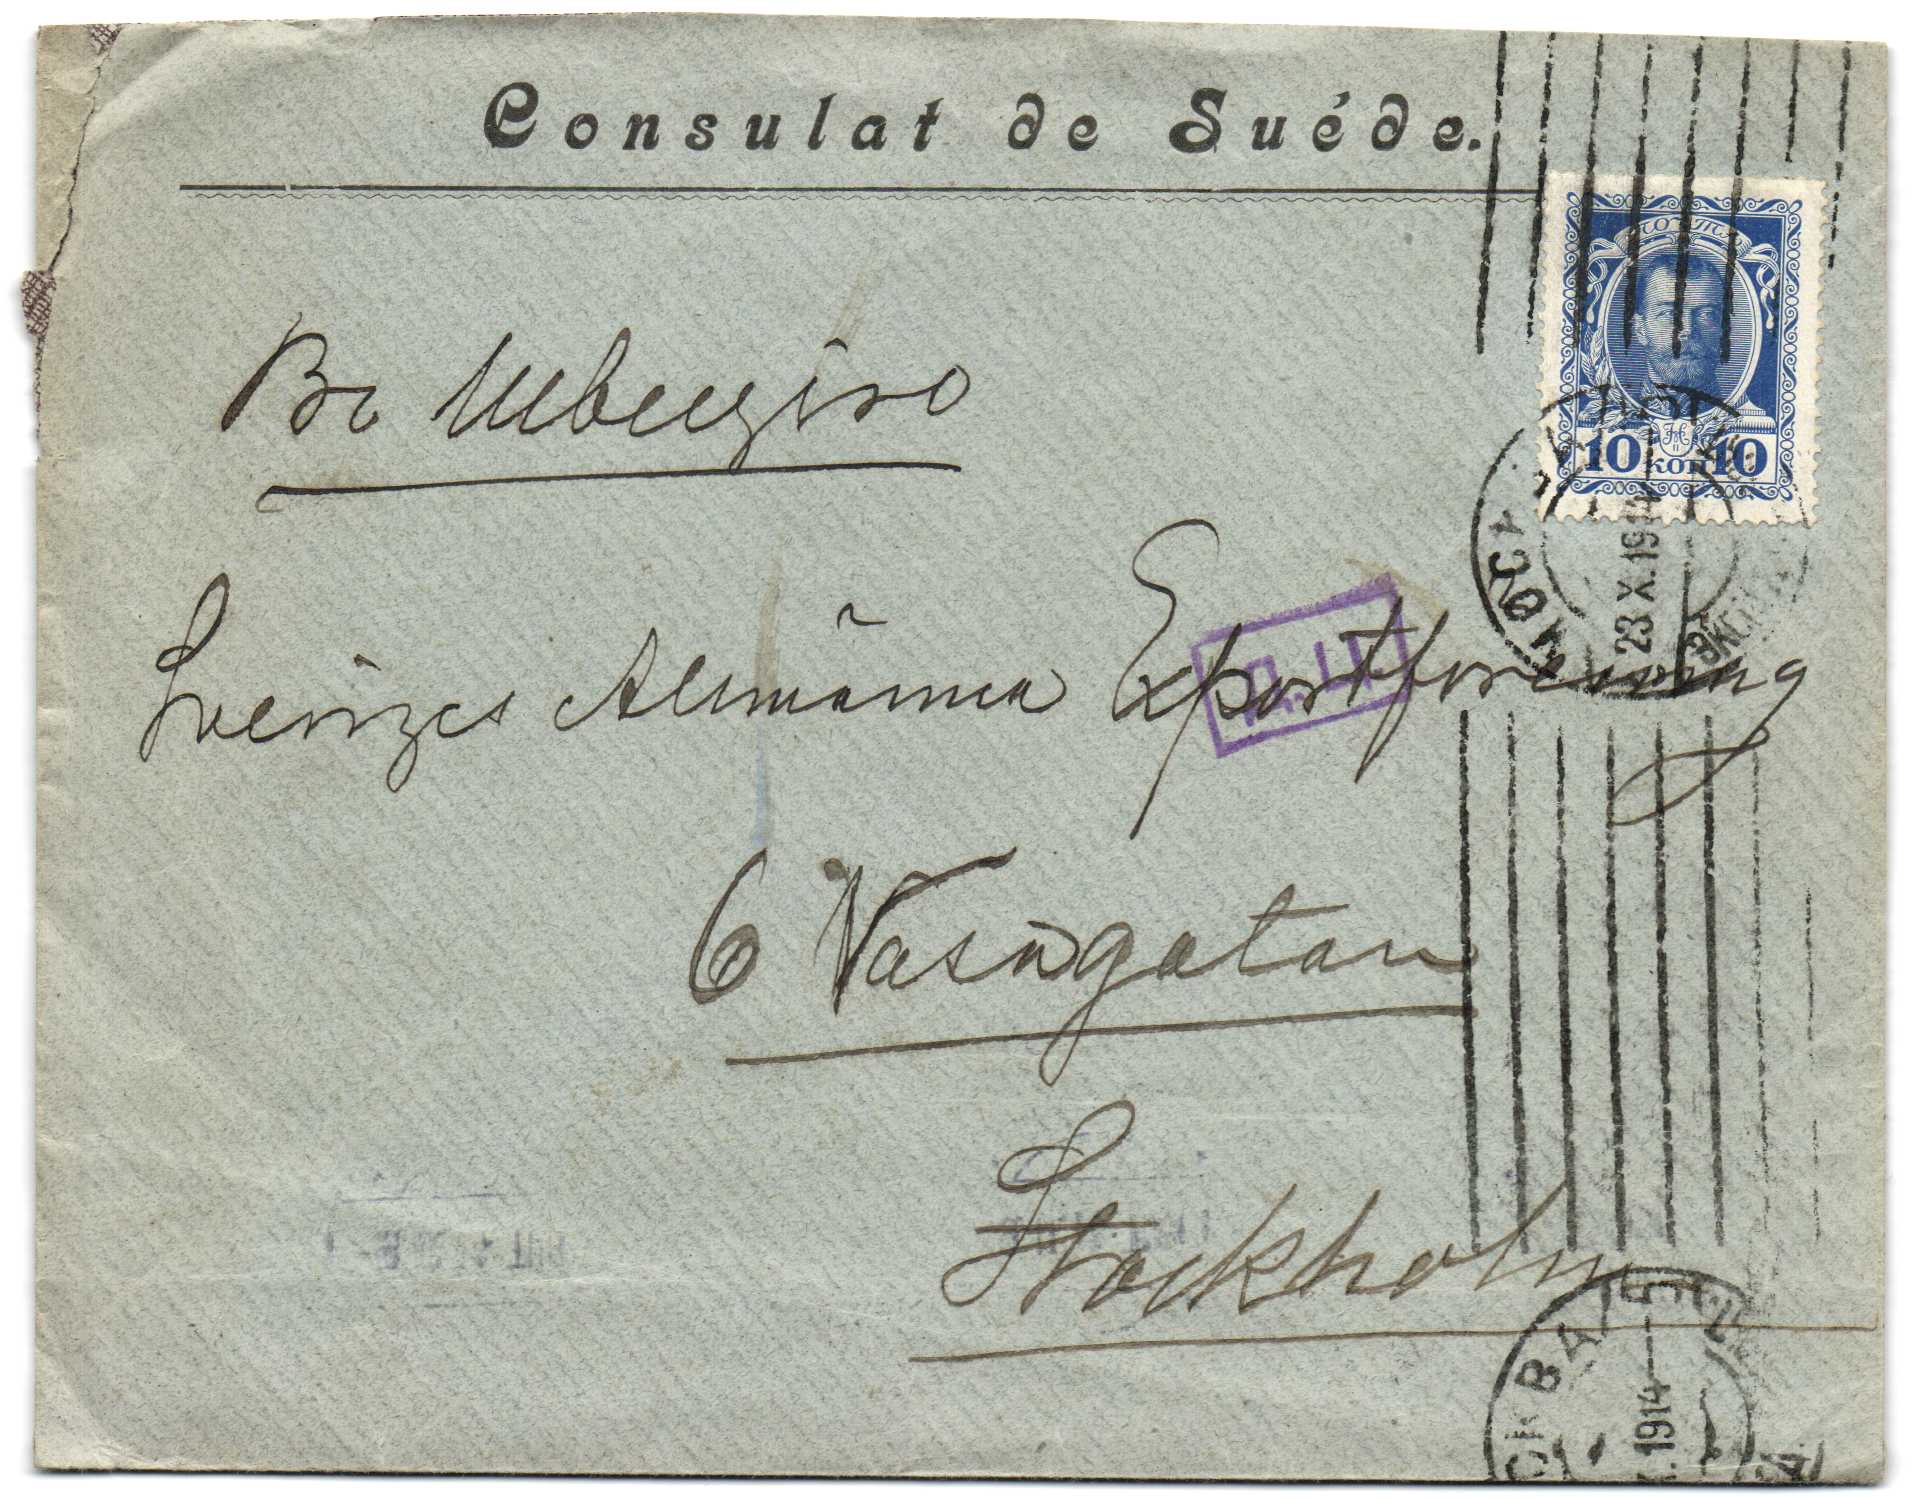 Consulat de Suéde.
ПОЧТА
10 КОП 10
Въ Швецiю
МОСКВА
23 X. 1914
Sveriges Allmänna Exportförening
Д. Ц.
6 Vasagatan
Stockholm
МОСКВА
X. 1914